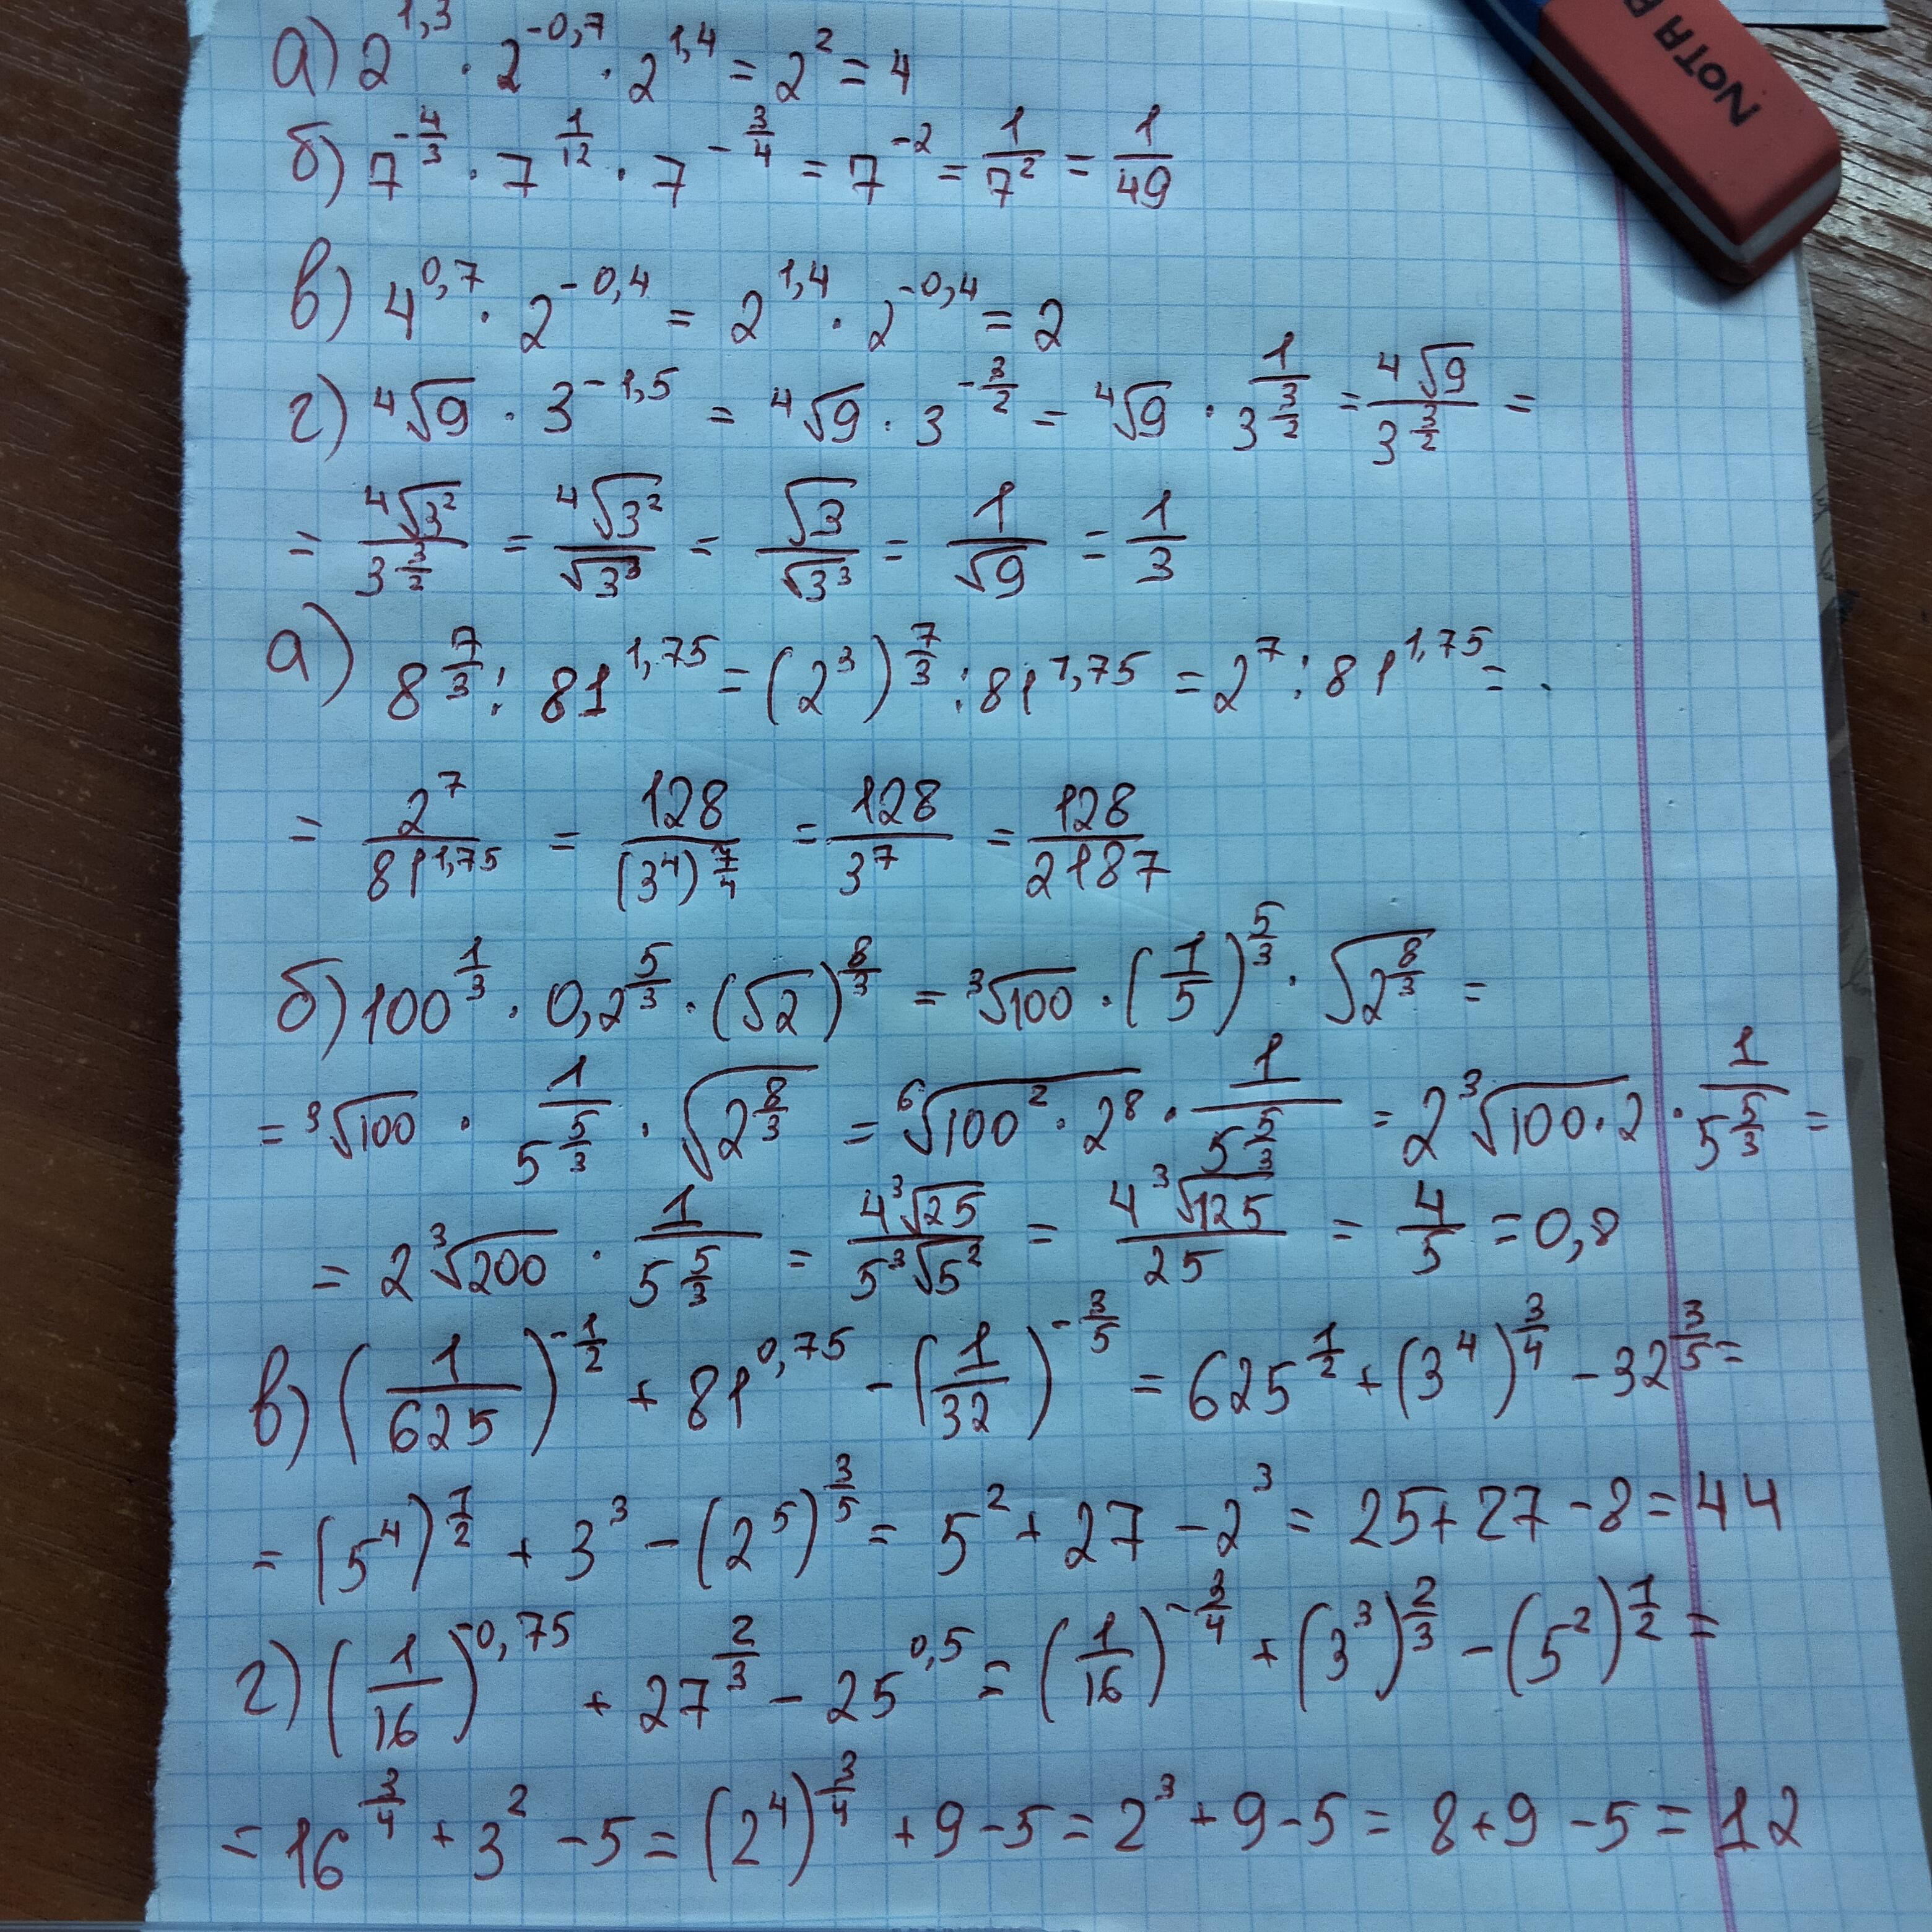 а) 2^{1,3} · 2^{-0,7} · 2^{1,4} = 2^2 = 4
NOTA
б) 7^{-4/3} · 7^{1/12} · 7^{-3/4} = 7^{-2} = 1/7^2 = 1/49
в) 4^{0,7} · 2^{-0,4} = 2^{1,4} · 2^{-0,4} = 2
г) ⁴√9 · 3^{-1,5} = ⁴√9 · 3^{-3/2} = ⁴√9 · 1/3^{3/2} = ⁴√9/3^{3/2} =
= ⁴√(3^2)/3^{3/2} = ⁴√(3^2)/√(3^3) = √3/√(3^3) = 1/√9 = 1/3
а) 8^{7/3} : 81^{1,75} = (2^3)^{7/3} : 81^{1,75} = 2^7 : 81^{1,75} =
= 2^7/81^{1,75} = 128/(3^4)^{7/4} = 128/3^7 = 128/2187
б) 100^{1/3} · 0,2^{5/3} · (√2)^{8/3} = ³√100 · (1/5)^{5/3} · √(2^{8/3}) =
= ³√100 · 1/5^{5/3} · √(2^{8/3}) = ⁶√(100^2 · 2^8) · 1/5^{5/3} = 2 ³√(100 · 2) · 1/5^{5/3} =
= 2 ³√200 · 1/5^{5/3} = 4 ³√25/5 ³√(5^2) = 4 ³√125/25 = 4/5 = 0,8
в) (1/625)^{-1/2} + 81^{0,75} - (1/32)^{-3/5} = 625^{1/2} + (3^4)^{3/4} - 32^{3/5} =
= (5^4)^{1/2} + 3^3 - (2^5)^{3/5} = 5^2 + 27 - 2^3 = 25 + 27 - 8 = 44
г) (1/16)^{-0,75} + 27^{2/3} - 25^{0,5} = (1/16)^{-3/4} + (3^3)^{2/3} - (5^2)^{1/2} =
= 16^{3/4} + 3^2 - 5 = (2^4)^{3/4} + 9 - 5 = 2^3 + 9 - 5 = 8 + 9 - 5 = 12